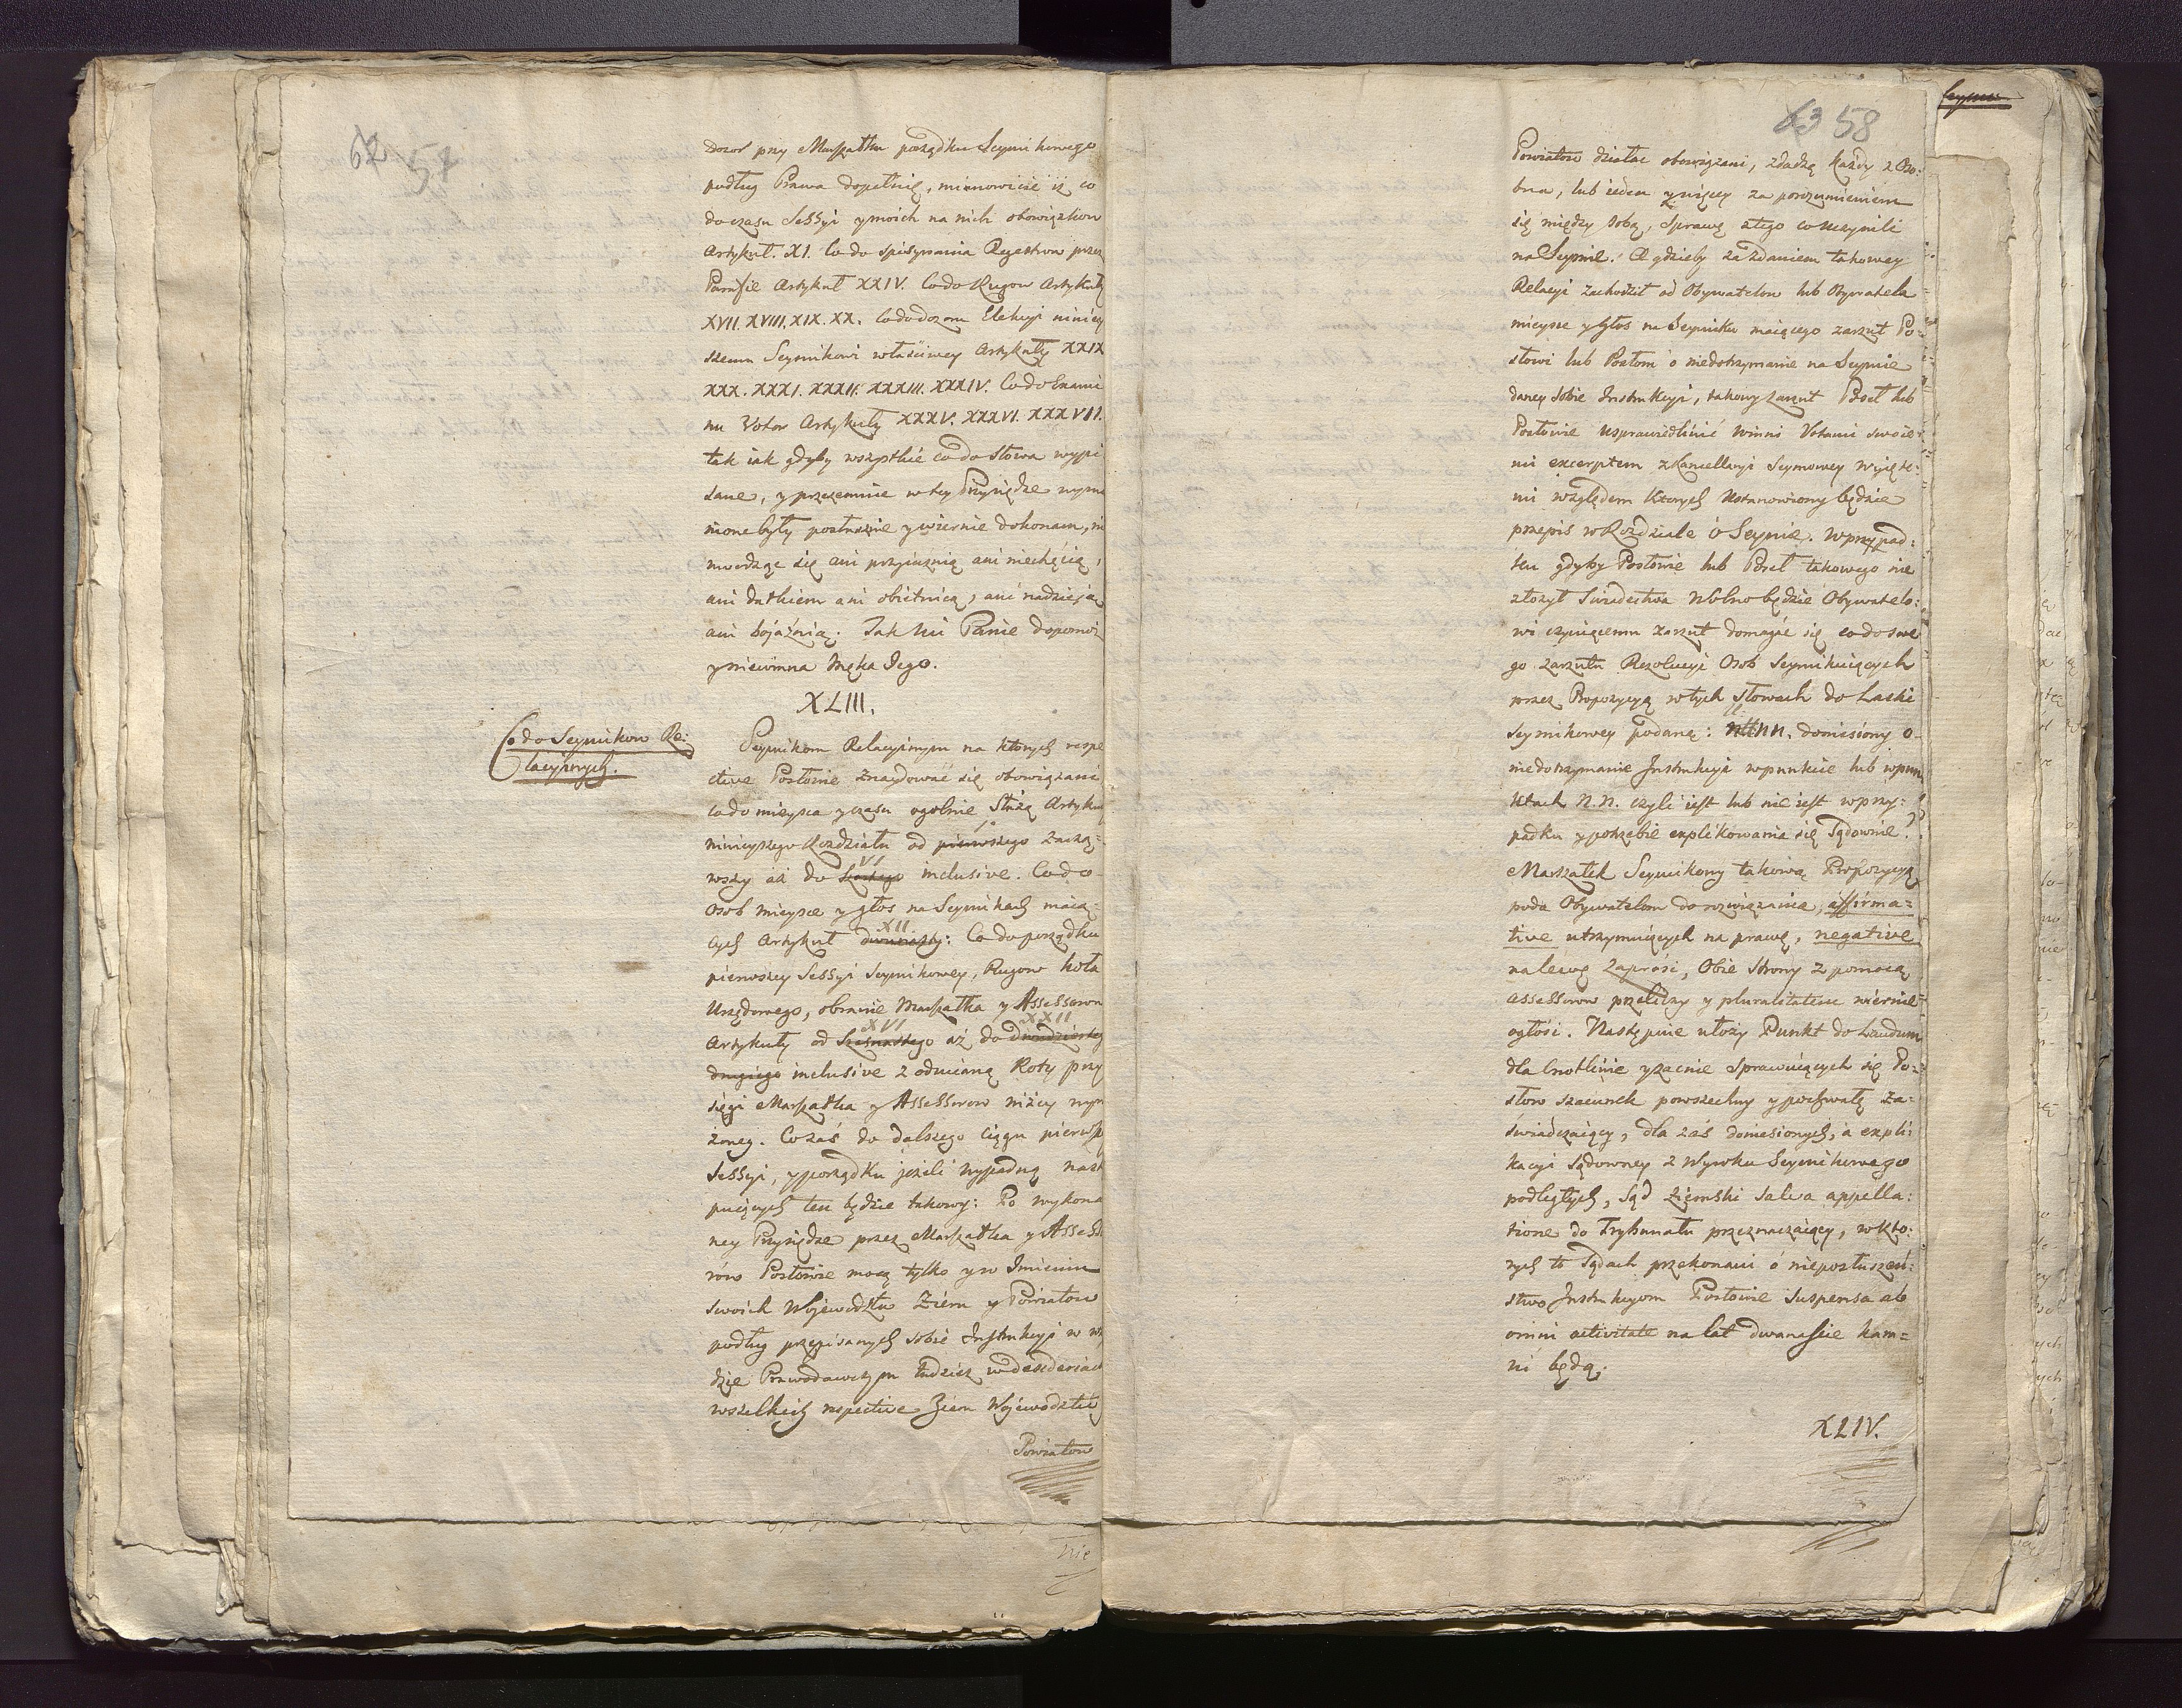 62 57
dozor przy Marszałku porządku Seymikowego
podług Prawa dopełnię, mianowicie iż co
do czasu Sessyi y moich na nich obowiązkow
Artykuł. XI. Co do spisywania Regestrow przez
Parafie Artykuł XXIV. Co do Rugow Artykuły
XVII. XVIII. XIX. XX. Co do dozoru Elekcyi niniey
szemu Seymikowi właściwey Artykuły XXIX
XXX. XXXI. XXXII. XXXIII. XXXIV. Co do Exami
nu Votow Artykuły XXXV. XXXVI. XXXVII.
tak iak gdyby wszystkie co do słowa wypi
sane, y przezemnie w tey Przysiędze wymie
nione były posłusznie y wiernie dokonam, nie
uwodząc się ani przyiaznią ani niechęcią,
ani datkiem ani obietnicą, ani nadzieją
ani bojaźnią. Tak mi Panie dopomóż
y niewinna Męka Jego.
XLIII.
Co do Seymikow Re:
lacyinych.
Seymikom Relacyinym na których respe
ctive Posłowie znaydować się obowiązani
co do mieysca y czasu ogolnie służą Artykuły
ninieyszego Rozdziału od pierwszego 1° zacząw=
wszy aż do szostego VI inclusive. Co do
Osob mieysce y głos na Seymikach maią=
cych Artykuł dwunasty XII: Co do porządku
pierwszey Sessyi Seymikowey, Rugow koła
Urzędowego, obranie Marszałka y Assessorow
Artykuły od Szesnastego XVI aż do dwudziestego XXII
drugiego inclusive z odmianą Roty przy
sięgi Marszałka y Assessorow niżey wyra
żoney. Co zaś do dalszego ciągu pierwszey
Sessyi, y porządku jeżeli wypadną nastę
puiących ten będzie takowy: Po wykona
ney Przysiędze przez Marszałka y Assesso
rów Posłowie mocą tylko y w Imieniu
swoich Wojewodztw Ziem y Powiatow
podług przepisanych sobie Instrukcyi w
dzie Prawodawczym tudzież w desideriach
wszelkich respective Ziem Wojewodztw
Powiatow
nie
63 58
Powiatow działac obowiązani, zdadzą każdy z Oso:
bna, lub ieden y więcey za porozumieniem
się między sobą, sprawę z tego co uczynili
na Seymie. A gdzieby za zdaniem takowey
Relacyi zachodził od Obywatelow lub Obywatela
mieysce y głos na Seymiku maiącego zarzut Po=
słowi lub Posłom o niedotrzymanie na Seymie
daney sobie Instrukcyi, takowy zarzut Poseł lub
Posłowie usprawiedlinić winni Votami swoie=
mi excerptem z Kancellaryi Seymowey wyięte:
mi względem których ustanowiony będzie
przepis w Rozdziale o Seymie. W przypad:
ku gdyby Posłowie lub Poseł takowego nie
złożył świadectwa Wolno będzie Obywatelo:
wi czyniącemu zarzut domagać się co do swe
go zarzutu Rezolucyi Osob Seymikuiących
przez Propozycyą w tych słowach do Laski
Seymikowey podaną: N.N. doniesiony o
niedotrzymanie Instrukcyi w punkcie lub w pun
ktach N.N. czyli iest lub nie iest w przy=
padku y potrzebie explikowania się Sądownie?
Marszałek Seymikowy takową Propozycyą
poda Obywatelom do rozwiązania, affirma=
tive utrzymuiących na prawą, negative
na lewą zaprosi, Obie strony z pomocą
assessorow przeliczy y pluralitatem wiernie
ogłosi. Następnie ułoży Punkt do Laudum
dla cnotliwie y zacnie sprawuiących się Po=
słow szacunek powszechny y pochwałę za=
świadczaiący, dla zaś doniesionych, a expli:
kacyi Sądowney z Wyroku Seymikowego
podległych, Sąd Ziemski salva appella:
tione do Trybunału przeznaczaiący, w kto:
rych to Sądach przekonani o nieposłuszeń:
stwo Instrukcyom Posłowie suspensa ab
omni activitate na lat dwanaście kara=
ni będą.
XLIV.
Seymu